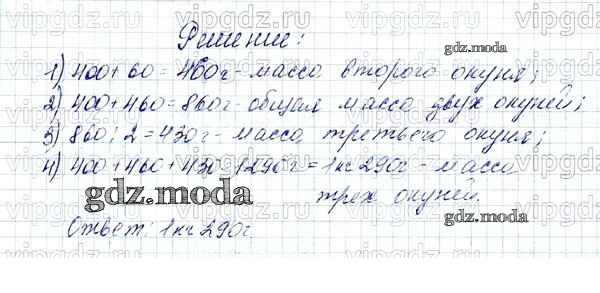 Решение:
1) 400 + 60 = 460г - масса второго окуня;
2) 400 + 460 = 860г - общая масса двух окуней;
3) 860 : 2 = 430г - масса третьего окуня;
4) 400 + 460 + 430 = 1290г = 1кг 290г - масса
трех окуней.
Ответ: 1кг 290г.
gdz.moda
gdz.moda
gdz.moda
vipgdz.ru